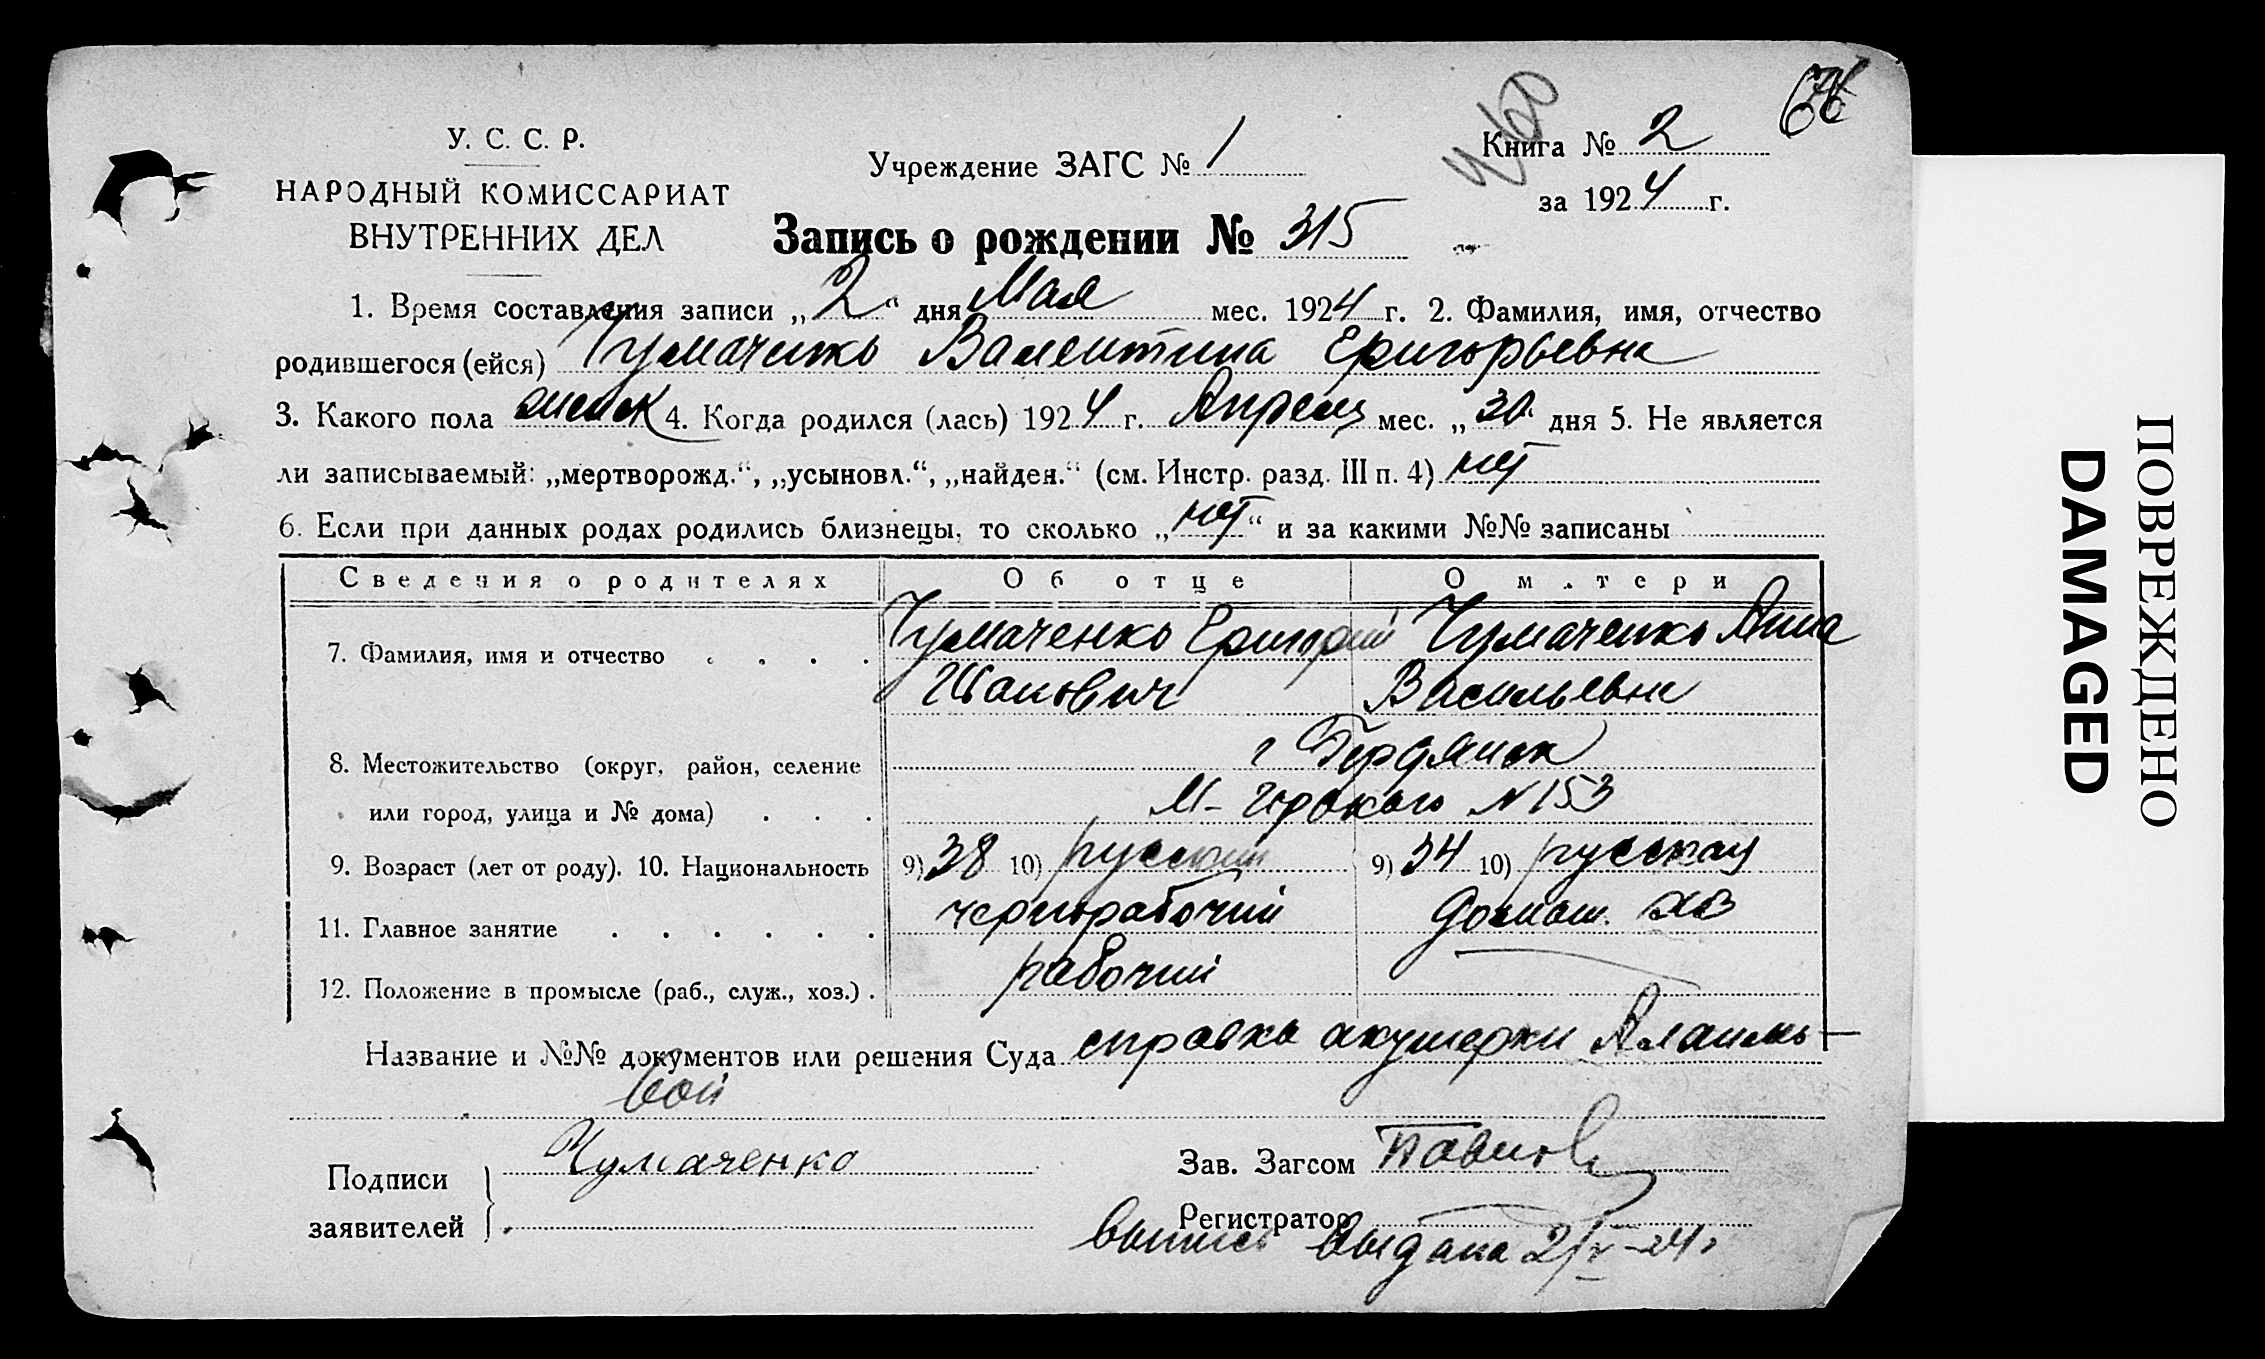 У. С. С. Р.
НАРОДНЫЙ КОМИССАРИАТ
ВНУТРЕННИХ ДЕЛ
Учреждение ЗАГС № 1
Книга № 2
за 1924 г.
Запись о рождении № 315
1. Время составления записи „2“ дня Мая мес. 1924 г. 2. Фамилия, имя, отчество
родившегося (ейся) Чумаченко Валентина Григорьевна
3. Какого пола женск 4. Когда родился (лась) 1924 г. Апрель мес. „30 дня 5. Не является
ли записываемый: „мертворожд.“, „усыновл.“, „найден.“ (см. Инстр. разд. III п. 4) нет
6. Если при данных родах родились близнецы, то сколько „нет“ и за какими №№ записаны
Сведения о родителях Об отце О м.тери
7. Фамилия, имя и отчество . . . . Чумаченко Григорий Чумаченко Анна
Иванович Васильевна
8. Местожительство (округ, район, селение г Бердянск
или город, улица и № дома) . . . М-Горького N 153
9. Возраст (лет от роду). 10. Национальность 9) 38 10) русский 9) 34 10) русская
11. Главное занятие . . . . . . чернорабочий домаш. хоз
12. Положение в промысле (раб., служ., хоз.) . рабочий
Название и №№ документов или решения Суда справка акушерки
вой
Подписи
заявителей
Чумаченко
Зав. Загсом Павлов
Регистратор
выпись выдана 2/V-24г
ПОВРЕЖДЕНО
DAMAGED